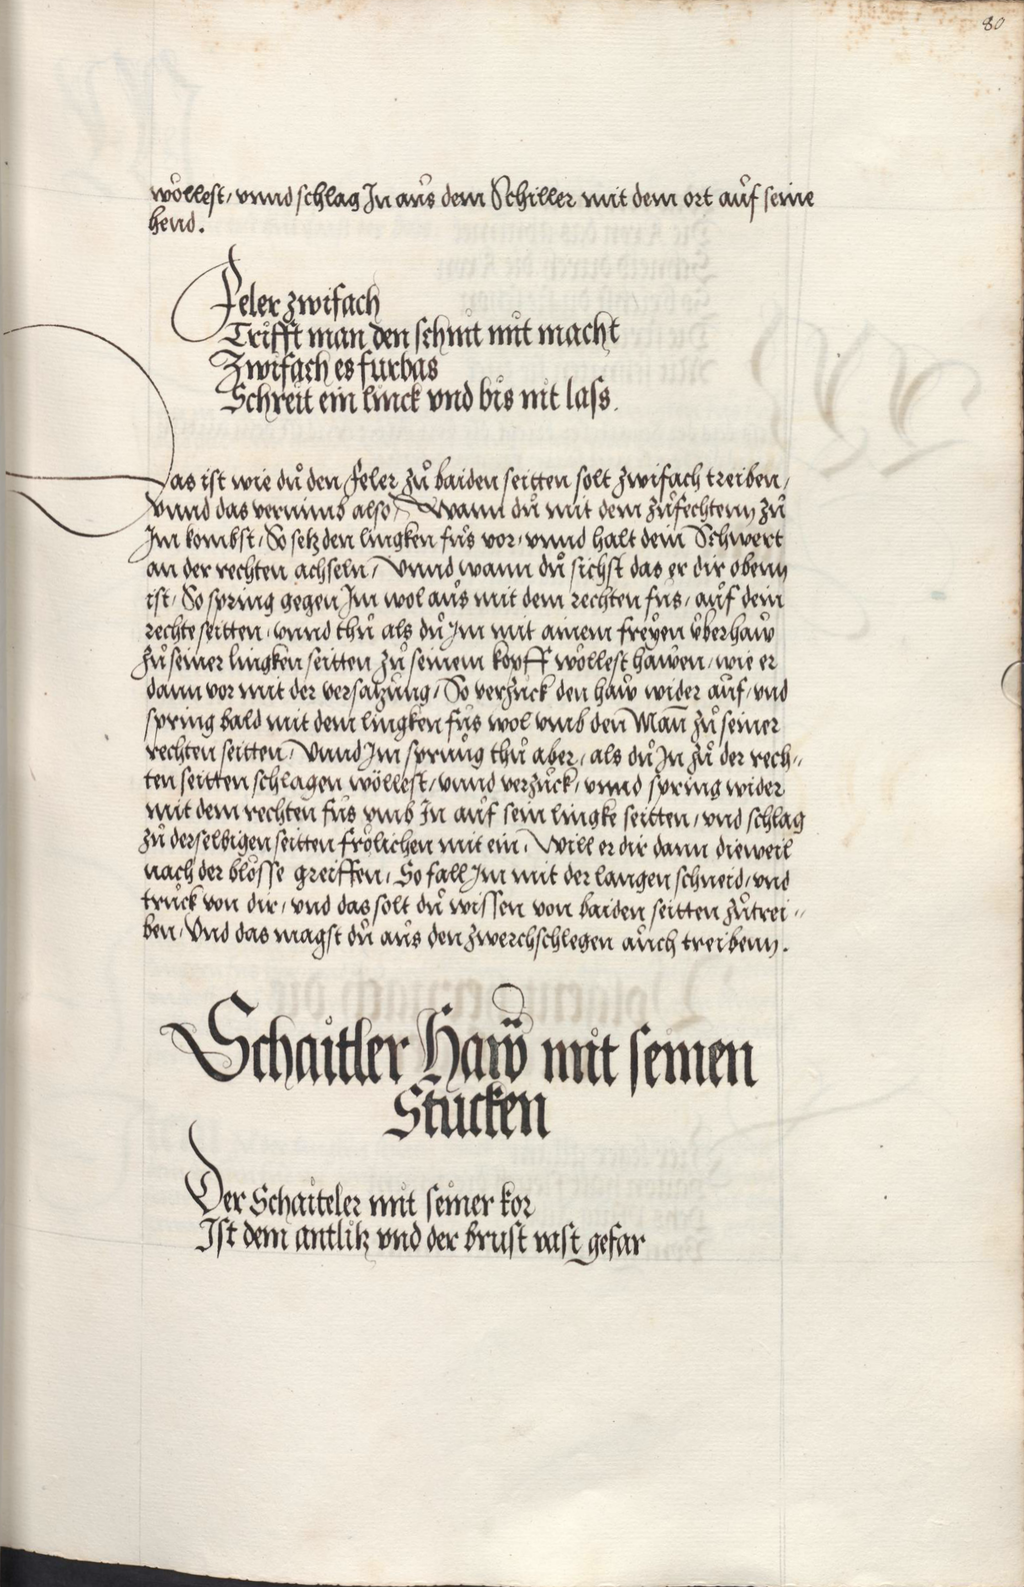 80
wöllest, vnnd schlag In aus dem Schiller mit dem ort auf seine
hend.
Feler zwifach
Trifft man den schnit mit macht
Zwifach es furbas
Schreit ein linck vnd bis nit lass.
Das ist wie du den Feler zu baiden seitten solt zwifach treiben,
vnnd das vernimb also, Wann du mit dem zufechtenn zu
Im kombst, So setz den lingken fus vor, vnnd halt dein Schwert
an der rechten achseln, Vnnd wann du sichst das er dir obenn
ist, So spring gegen Im wol aus mit dem rechten fus, auf dein
rechte seitten, vnnd thu als du Im mit ainem freyen überhaw
zu seiner lingken seitten zu seinem kopff wöllest hawen, wie er
dann vor mit der versatzung, So verzuck den haw wider auf, vnd
spring bald mit dem lingken fus wol vmb den Man zu seiner
rechten seitten, Vnnd Im sprung thu aber, als du In zu der rech„
ten seitten schlagen wöllest, vnnd verzuck, vnnd spring wider
mit dem rechten fus vmb In auf sein lingke seitten, vnd schlag
zu derselbigen seitten frölichen mit ein, Will er dir dann dieweil
nach der blösse greiffen, So fall Im mit der langen schneid, vnd
truck von dir, vnd das solt du wissen von baiden seitten zutrei„
ben, Vnd das magst du aus den zwerchschlegen auch treibenn.
Schaitler Haw mit seinen
Stucken
Der Schaiteler mit seiner kor
Ist dem antlitz vnd der brust vast gefar